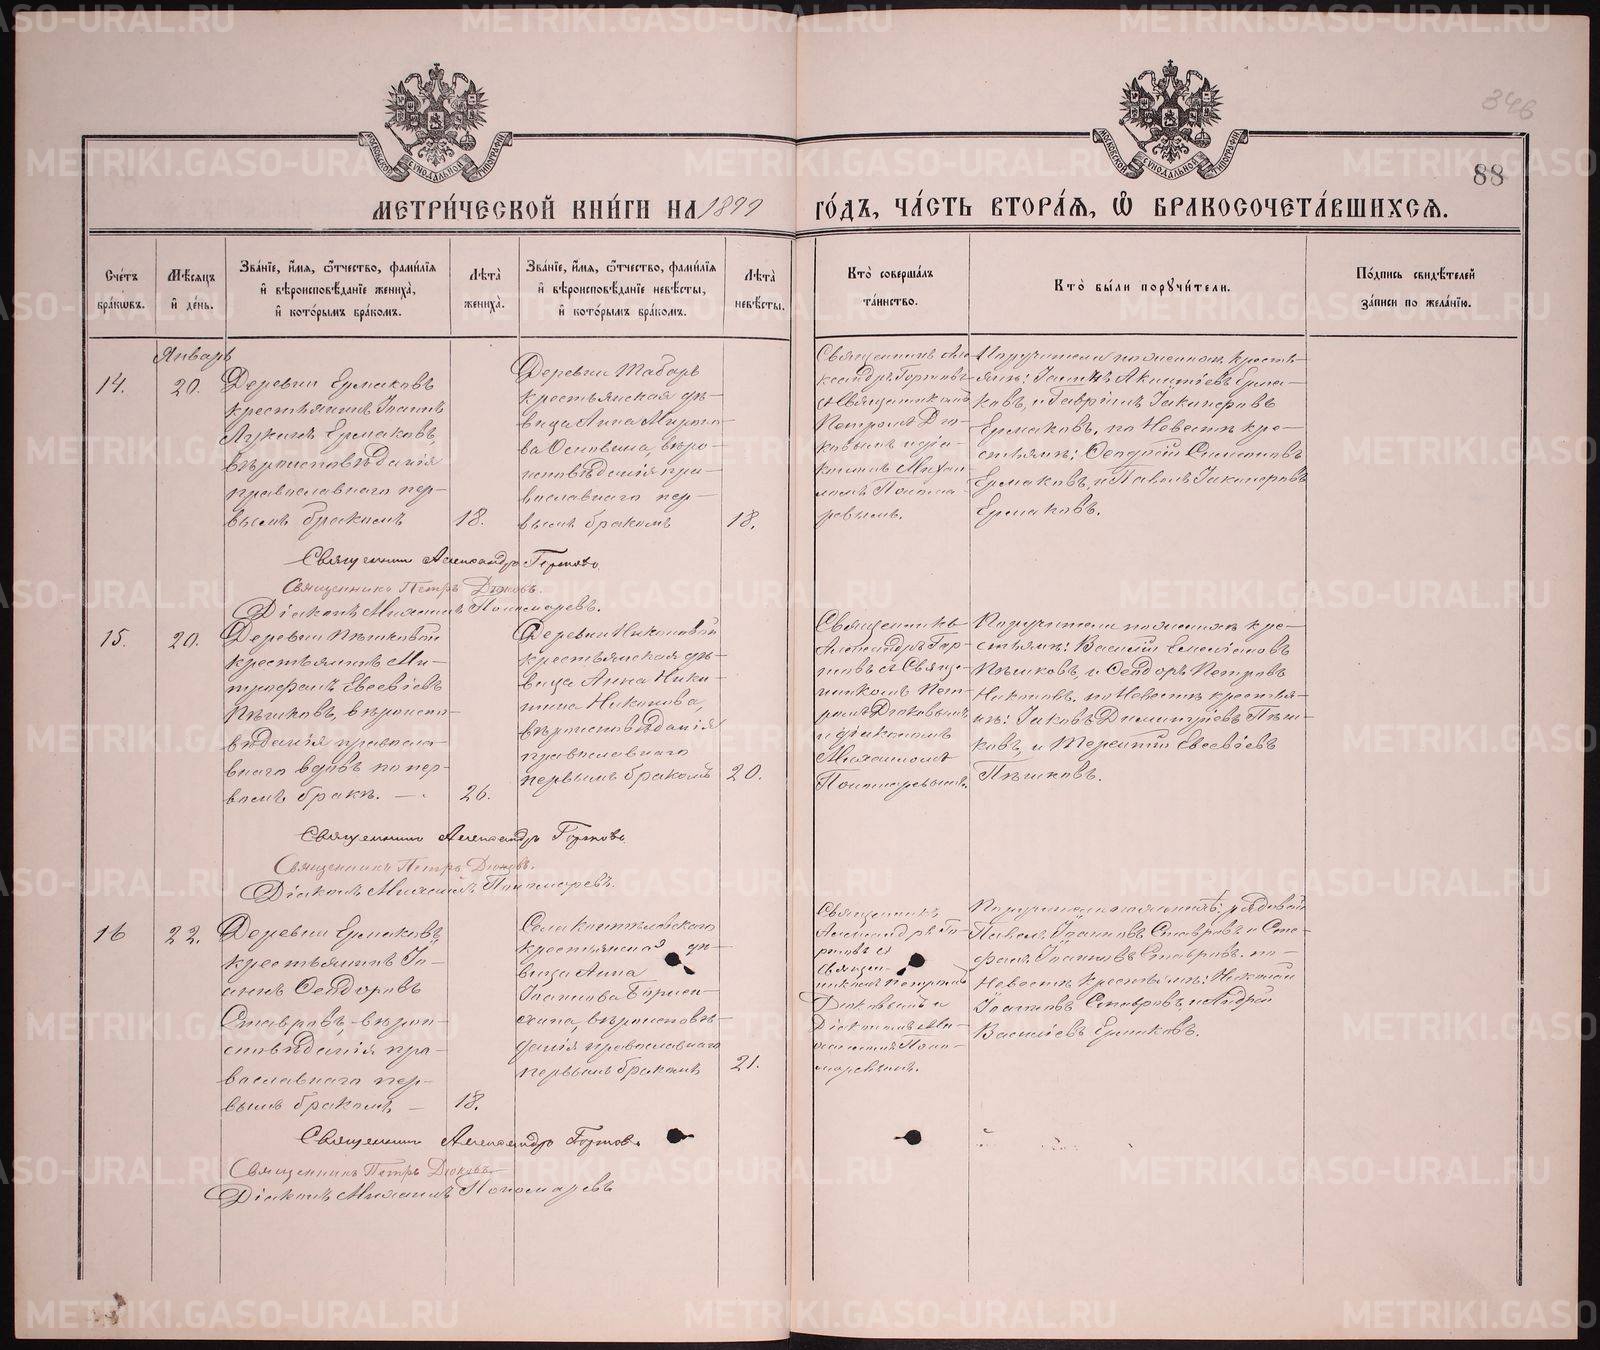 346
88
МЕТРИ́ЧЕСКОЙ КНИ́ГИ НА 1899
ГО́ДЪ, ЧА́СТЬ ВТОРА́Я, Ѽ БРАКОСОЧЕТА́ВШИХСЯ.
Сче́тъ бра́ковъ.
Мѣ́сяцъ и҆ де́нь.
Зва́нїе, и҆́мя, ѻ҆́тчество, фами́лїя и҆ вѣроисповѣ́данїе жениха̀, и҆ кото́рымъ бра́комъ.
Лѣ́та жениха̀.
Зва́нїе, и҆́мя, ѻ҆́тчество, фами́лїя и҆ вѣроисповѣ́данїе невѣ́сты, и҆ кото́рымъ бра́комъ.
Лѣ́та невѣ́сты.
Кто̀ соверша́лъ та́инство.
Кто̀ бы́ли порꙋчи́тели.
По́дпись свидѣ́телей за́писи по жела́нїю.
Январь
14.
20.
Деревни Ермаковъ
крестьянинъ Іоаннъ
Лукинъ Ермаковъ,
вѣроисповѣданія
православнаго пер-
вымъ бракомъ
18.
Деревни Табаръ
крестьянская дѣ-
вица Анна Миро
ва Осипвина, вѣро-
исповѣданія пра-
вославнаго пер-
вымъ бракомъ
18.
Священникъ Але
ксандръ Гортовъ
съ Священникомъ
Петромъ Дю-
ковымъ и діа-
кономъ Михаи
ломъ Понома-
ревымъ.
Поручители по женихѣ кресть-
яне:
Ерма-
ковъ, и Гавріилъ Никаноровъ
Ермаковъ, по Невестѣ кре-
стьяне:
Ермаковъ, и Павелъ Никаноровъ
Ермаковъ.
Священникъ Александръ Гортовъ.
Священникъ Петръ Дюковъ.
Діаконъ Михаилъ Пономаревъ.
15.
20.
Деревни Пѣшковой
крестьянинъ Ми-
трофанъ Евсевіевъ
Пѣшковъ, вѣроиспо-
вѣданія православ-
наго вдовъ по пер-
вомъ бракѣ. —
26.
Деревни Никоновой
крестьянская дѣ-
вица Анна Ники-
тина Никонова,
вѣроисповѣданія
православнаго
первымъ бракомъ
20.
Священникъ
Александръ Гор-
товъ съ Свяще-
нникомъ Пет-
ромъ Дюковымъ,
и діакономъ
Михаиломъ
Пономаревымъ.
Поручители по женихѣ кре-
стьяне: Василій Емеліановъ
Пѣшковъ, и Ѳеодоръ Петровъ
Никоновъ, по Невестѣ крестья-
не: Іаковъ Димитріевъ Пѣш-
ковъ, и Терентій Евсевіевъ
Пѣшковъ.
Священникъ Александръ Гортовъ
Священникъ Петръ Дюковъ.
Діаконъ Михаилъ Пономаревъ.
16
22.
Деревни Ермаковъ
крестьянинъ Іо-
аннъ Ѳеодоровъ
Ставровъ, вѣрои-
сповѣданія пра-
вославнаго пер-
вымъ бракомъ —
18.
Села
крестьянская дѣ-
вица Анна
Іоаннова
вѣроисповѣ-
данія православнаго
первымъ бракомъ
21.
Священникъ
Александръ Го-
ртовъ съ
Священ-
никомъ Петромъ
Дюковымъ и
Діакономъ Ми-
хаиломъ Поно-
маревымъ.
Поручители по женихѣ: рядовой
Павелъ Іоанновъ Ставровъ и Сте-
фанъ Іоанновъ Ставровъ, по-
Невестѣ крестьяне: Николай
Іоанновъ Ставровъ, и Андрей
Василіевъ Ермаковъ.
Священникъ Александръ Гортовъ.
Священникъ Петръ Дюковъ.
Діаконъ Михаилъ Пономаревъ
METRIKI.GASO-URAL.RU